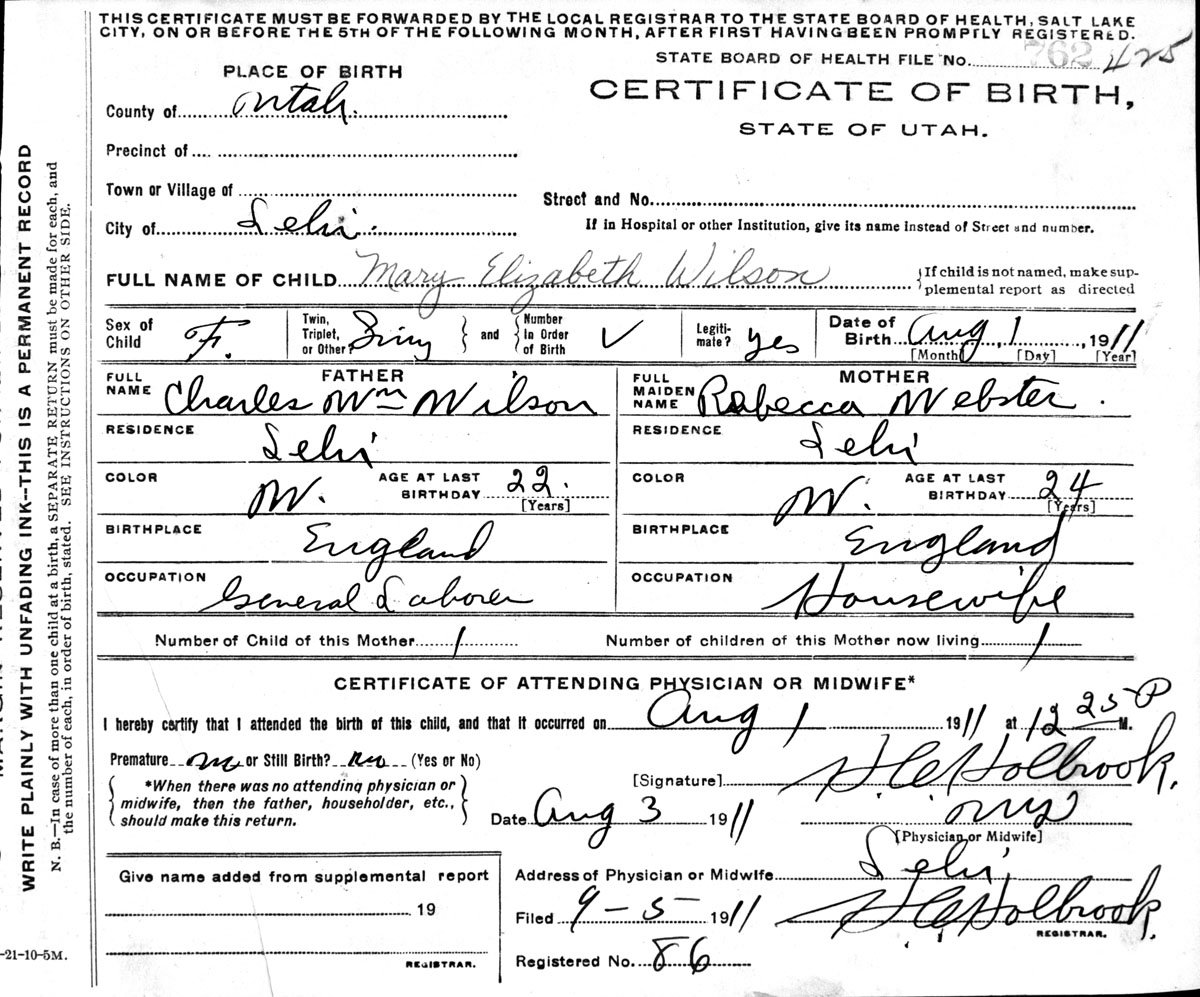 THIS CERTIFICATE MUST BE FORWARDED BY THE LOCAL REGISTRAR TO THE STATE BOARD OF HEALTH, SALT LAKE
CITY, ON OR BEFORE THE 5TH OF THE FOLLOWING MONTH, AFTER FIRST HAVING BEEN PROMPTLY REGISTERED.
STATE BOARD OF HEALTH FILE No. 762 425
PLACE OF BIRTH
CERTIFICATE OF BIRTH,
County of Utah.
STATE OF UTAH.
Precinct of
Town or Village of
Street and No.
City of Lehi.
If in Hospital or other Institution, give its name instead of Street and number.
FULL NAME OF CHILD Mary Elizabeth Wilson
If child is not named, make sup-
plemental report as directed
Sex of Child F.
Twin, Triplet, or Other?
and
Number in Order of Birth
Legiti-mate? yes
Date of Birth Aug, 1, 1911
[Month] [Day] [Year]
FATHER
FULL NAME Charles Wm Wilson
MOTHER
FULL MAIDEN NAME Rebecca Webster.
RESIDENCE Lehi
RESIDENCE Lehi
COLOR W. AGE AT LAST BIRTHDAY 22. [Years]
COLOR W. AGE AT LAST BIRTHDAY 24 [Years]
BIRTHPLACE England
BIRTHPLACE England
OCCUPATION General Laborer
OCCUPATION Housewife
Number of Child of this Mother 1
Number of children of this Mother now living 1
CERTIFICATE OF ATTENDING PHYSICIAN OR MIDWIFE*
I hereby certify that I attended the birth of this child, and that it occurred on Aug 1 1911 at 12 25 P M.
Premature no or Still Birth? no (Yes or No)
*When there was no attending physician or
midwife, then the father, householder, etc.,
should make this return.
[Signature] H C Holbrook.
Date Aug 3 1911
[Physician or Midwife]
Give name added from supplemental report
19
REGISTRAR.
Address of Physician or Midwife Lehi
Filed 9-5 1911 H C Holbrook.
REGISTRAR.
Registered No. 86
WRITE PLAINLY WITH UNFADING INK--THIS IS A PERMANENT RECORD
N. B.—In case of more than one child at a birth, a SEPARATE RETURN must be made for each, and
the number of each, in order of birth, stated. SEE INSTRUCTIONS ON OTHER SIDE.
-21-10-5M.